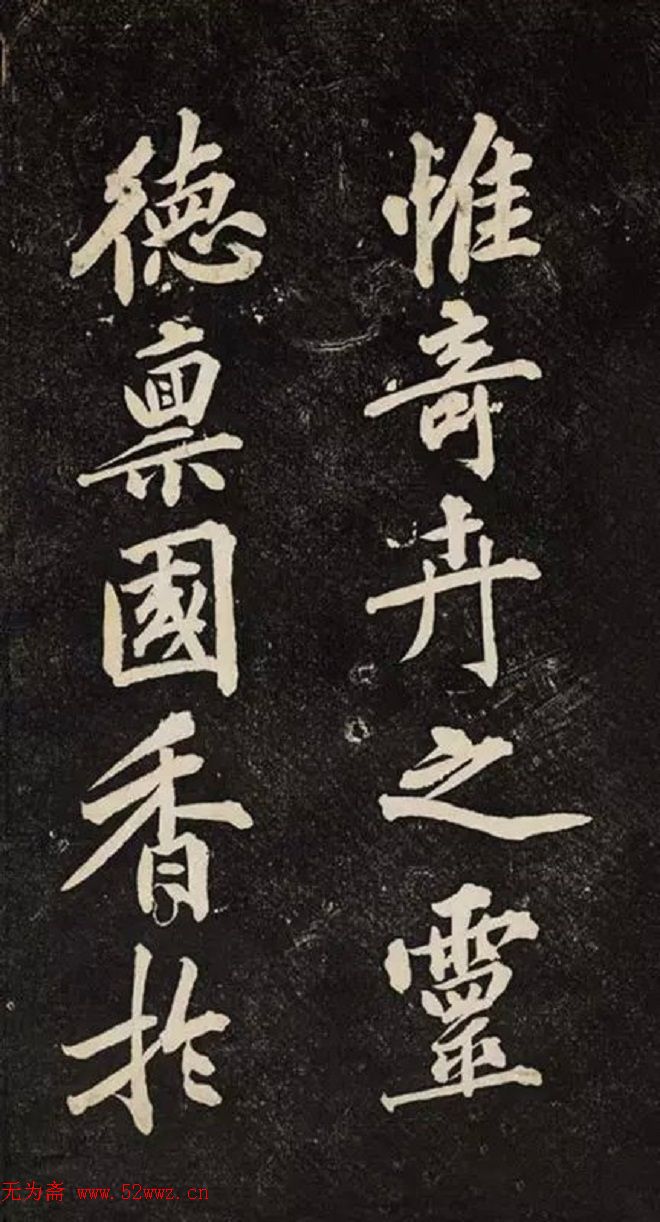 惟奇卉之靈
德稟國香於
无为斋 www.52wwz.cn